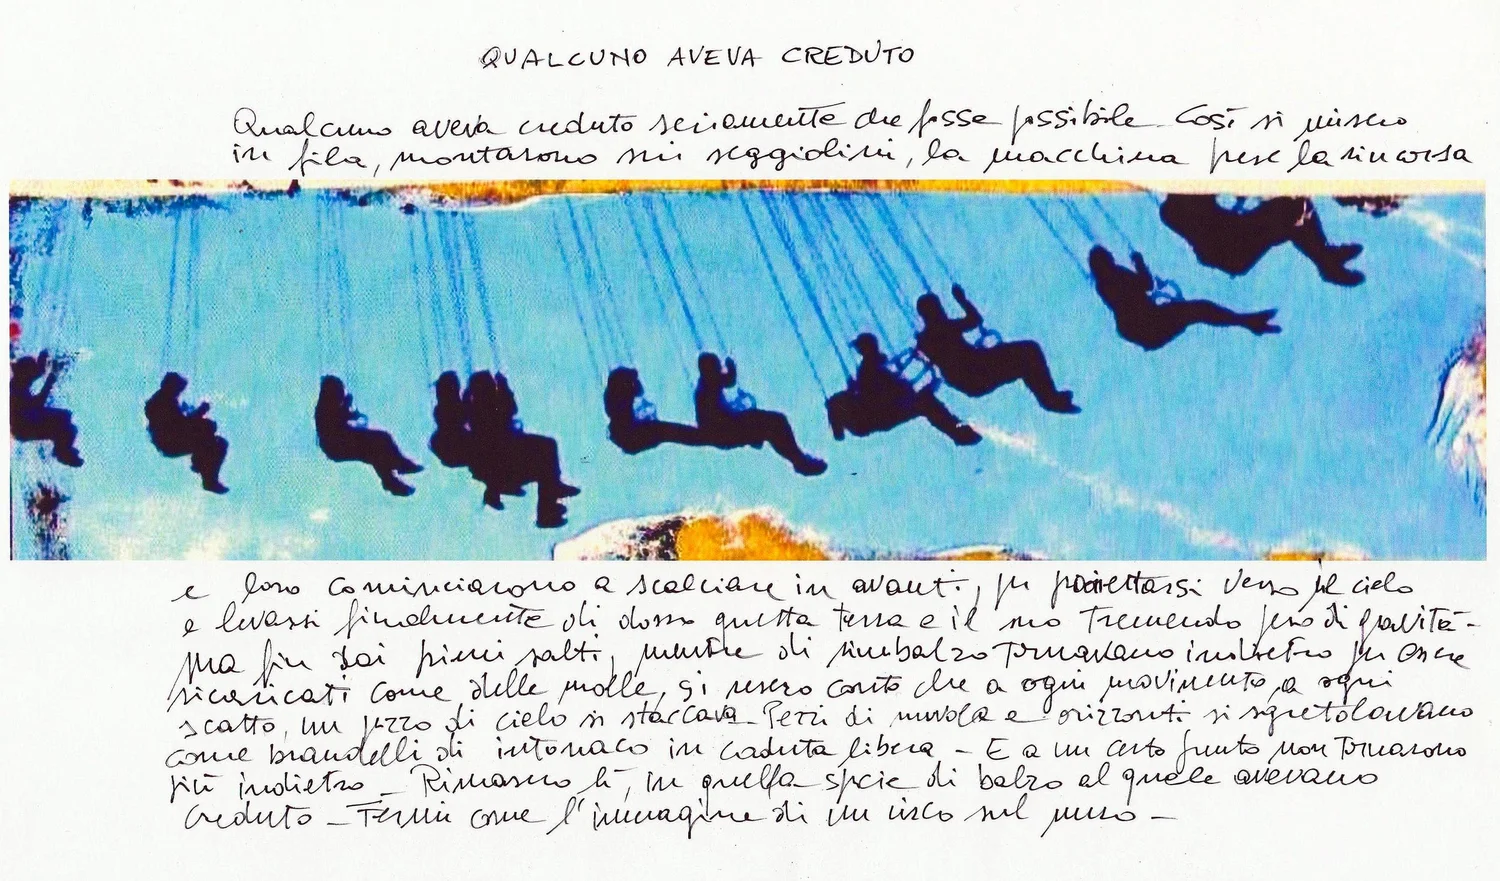 QUALCUNO AVEVA CREDUTO
Qualcuno aveva creduto seriamente che fosse possibile. Così si misero
in fila, montarono sui seggiolini, la macchina prese la rincorsa
e loro cominciarono a scalciare in avanti, per proiettarsi verso il cielo
e levarsi finalmente di dosso questa terra e il suo tremendo peso di gravità -
Ma fin dai primi salti, mentre di rimbalzo tornavano indietro per essere
ricaricati come delle molle, si resero conto che a ogni movimento, a ogni
scatto, un pezzo di cielo si staccava - Pezzi di nuvola e orizzonti si sgretolavano
come brandelli di intonaco in caduta libera - E a un certo punto non tornarono
più indietro - Rimasero lì, in quella specie di balzo al quale avevano
creduto - Fermi come l'immagine di un sul muro -